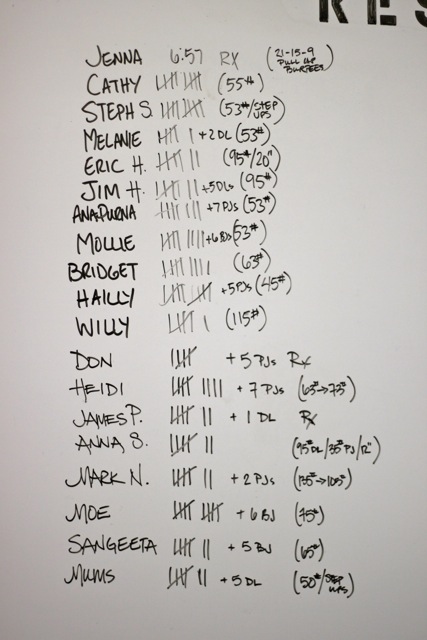 RES
JENNA 6:57 RX (21-15-9 PULL UP BURPEES)
CATHY 卌 卌 (55#)
STEPH S. 卌 卌 (53#/STEP UPS)
MELANIE 卌 | + 2 DL (53#)
ERIC H. 卌 || (95#/20")
JIM H. 卌 || + 5 DLs (95#)
ANAPURNA 卌 || + 7 PJs (53#)
MOLLIE 卌 |||| + 6 BJs (53#)
BRIDGET 卌 |||| (63#)
HAILLY 卌 卌 + 5 PJs (45#)
WILLY 卌 | (115#)
DON 卌 + 5 PJs Rx
HEIDI 卌 |||| + 7 PJs (63#→73#)
JAMES P. 卌 || + 1 DL Rx
ANNA S. 卌 || (95# DL/35# PJ/12")
MARK N. 卌 || + 2 PJs (135#→105#)
MOE 卌 卌 + 6 BJ (75#)
SANGEETA 卌 || + 5 BJ (65#)
MUMS 卌 || + 5 DL (50#/STEP UPS)